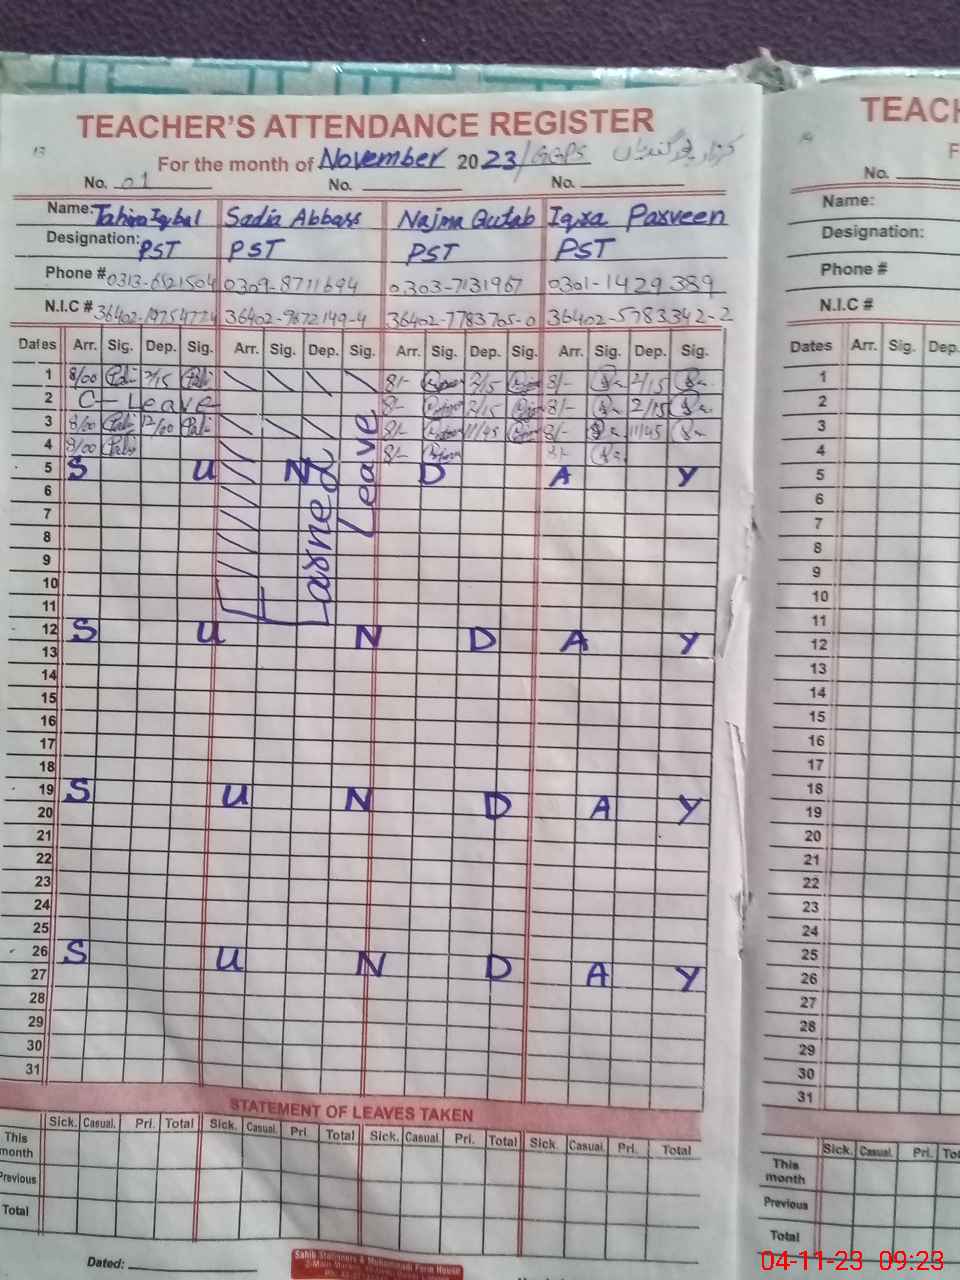 TEACHER'S ATTENDANCE REGISTER
13
For the month of November 2023/GGPS
No. 01 No. No.
Name: Tahira Iqbal Sadia Abbass Najma Qutab Iqra Parveen
Designation: PST PST PST PST
Phone # 0313-6521504 0309-8711694 0303-7131967 0301-1429389
N.I.C # 36402- 36402-9672149-4 36402-7783705-0 36402-5783342-2
Dates Arr. Sig. Dep. Sig. Arr. Sig. Dep. Sig. Arr. Sig. Dep. Sig. Arr. Sig. Dep. Sig.
1 8/00 2/15 8/- 2/15 8/- 2/15
2 C-Leave 8/- 2/15 8/- 2/15
3 8/00 12/00 8/- 11/45 8/- 11/45
4 8/00 8/- 8/-
Earned Leave
5 S U N D A Y
6
7
8
9
10
11
12 S U N D A Y
13
14
15
16
17
18
19 S U N D A Y
20
21
22
23
24
25
26 S U N D A Y
27
28
29
30
31
STATEMENT OF LEAVES TAKEN
Sick. Casual. Pri. Total Sick. Casual. Pri. Total Sick. Casual. Pri. Total Sick. Casual. Pri. Total
This month
Previous
Total
Dated:
Sahib Stationers & Muhammadi Form House
TEACH
F
No.
Name:
Designation:
Phone #
N.I.C #
Dates Arr. Sig. Dep.
1
2
3
4
5
6
7
8
9
10
11
12
13
14
15
16
17
18
19
20
21
22
23
24
25
26
27
28
29
30
31
Sick. Casual. Pri. To
This month
Previous
Total
04-11-23 09:23